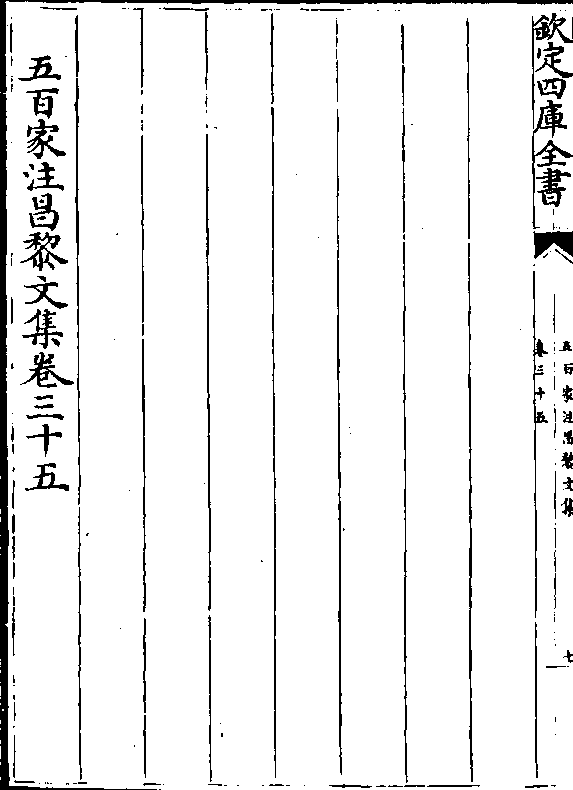 欽定四庫全書
五百家注昌黎文集
卷三十五
七
五百家注昌黎文集卷三十五